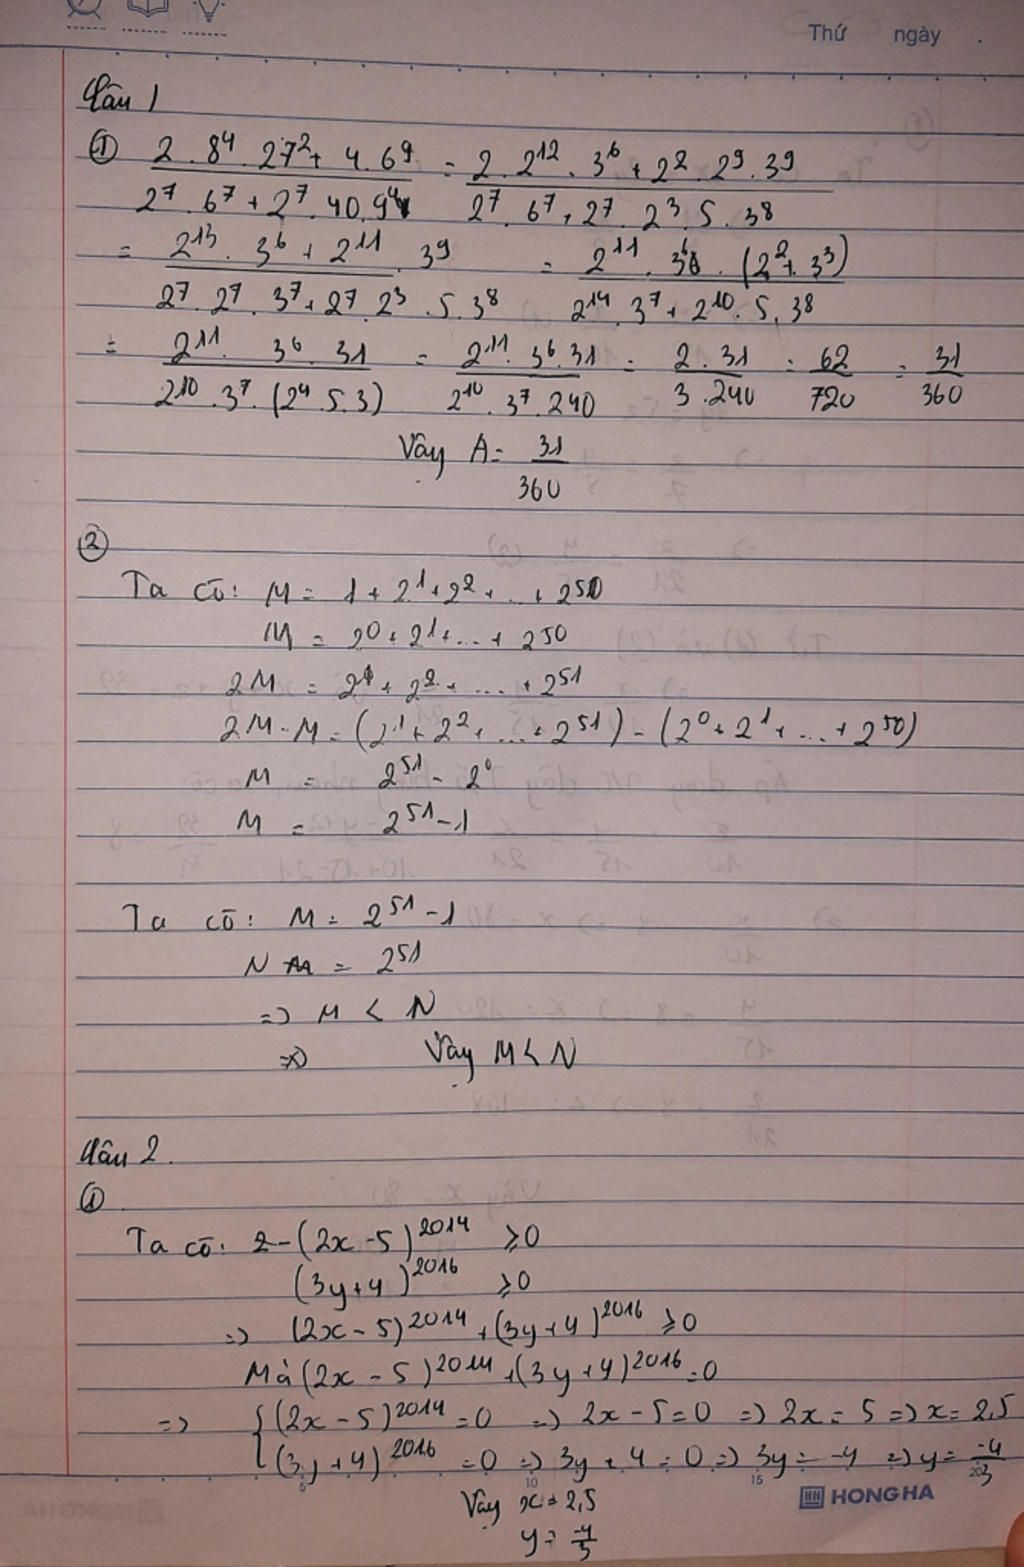 Thứ ngày .
Câu 1
① 2.8⁴.27² + 4.6⁹ / 2⁷.6⁷ + 2⁷.40.9⁴ = 2.2¹².3⁶ + 2².2⁹.3⁹ / 2⁷.6⁷ + 2⁷.2³.5.3⁸
= 2¹³.3⁶ + 2¹¹.3⁹ / 2⁷.2⁷.3⁷ + 2⁷.2³.5.3⁸ = 2¹¹.3⁶.(2² + 3³) / 2¹⁴.3⁷ + 2¹⁰.5.3⁸
= 2¹¹.3⁶.31 / 2¹⁰.3⁷.(2⁴.5.3) = 2¹¹.3⁶.31 / 2¹⁰.3⁷.240 = 2.31 / 3.240 = 62 / 720 = 31 / 360
Vây A = 31 / 360
②
Ta có: M = 1 + 2¹ + 2² + ... + 2⁵⁰
M = 2⁰ + 2¹ + ... + 2⁵⁰
2M = 2¹ + 2² + ... + 2⁵¹
2M - M = (2¹ + 2² + ... + 2⁵¹) - (2⁰ + 2¹ + ... + 2⁵⁰)
M = 2⁵¹ - 2⁰
M = 2⁵¹ - 1
Ta có: M = 2⁵¹ - 1
N = 2⁵¹
=> M < N
=> Vây M < N
Câu 2.
①
Ta có: (2x - 5)²⁰¹⁴ ≥ 0
(3y + 4)²⁰¹⁶ ≥ 0
=> (2x - 5)²⁰¹⁴ + (3y + 4)²⁰¹⁶ ≥ 0
Mà (2x - 5)²⁰¹⁴ + (3y + 4)²⁰¹⁶ = 0
=> { (2x - 5)²⁰¹⁴ = 0 => 2x - 5 = 0 => 2x = 5 => x = 2,5
(3y + 4)²⁰¹⁶ = 0 => 3y + 4 = 0 => 3y = -4 => y = -4/3
5 10 15 20
Vây x = 2,5
HONG HA
y = -4/3